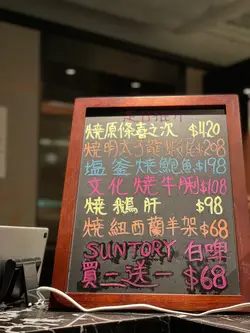 燒原條喜之次 $420
燒明太子龍蝦 $208
塩釜燒鮑魚 $198
文化燒牛脷 $108
燒鵝肝 $98
燒紐西蘭羊架 $68
SUNTORY 白啤
買二送一 $68